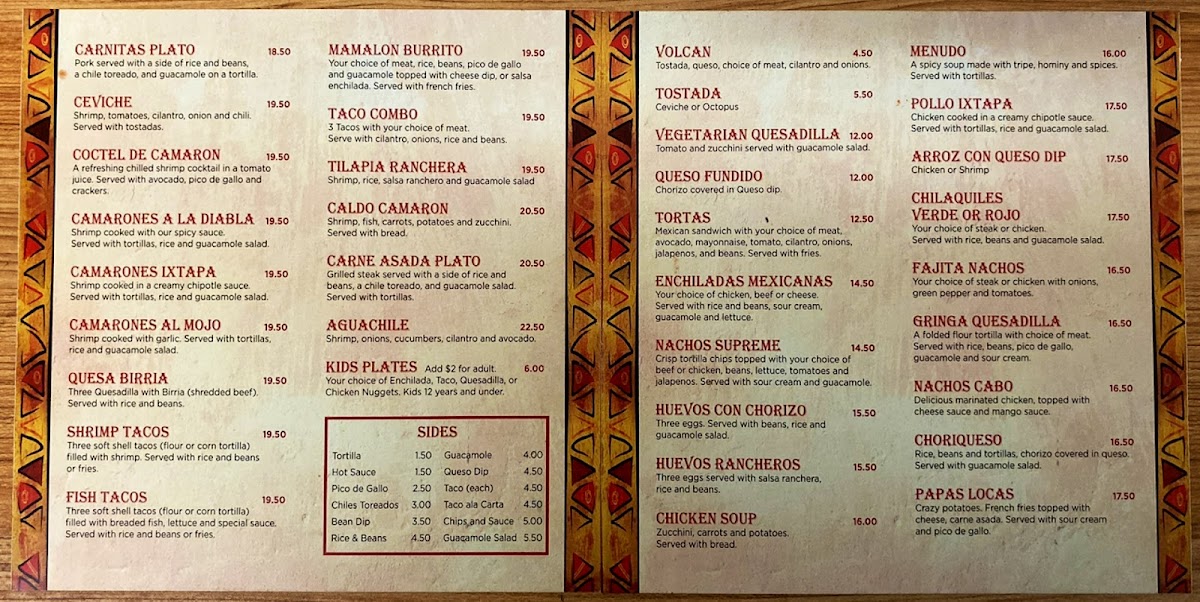 CARNITAS PLATO 18.50
Pork served with a side of rice and beans,
a chile toreado, and guacamole on a tortilla.
CEVICHE 19.50
Shrimp, tomatoes, cilantro, onion and chili.
Served with tostadas.
COCTEL DE CAMARON 19.50
A refreshing chilled shrimp cocktail in a tomato
juice. Served with avocado, pico de gallo and
crackers.
CAMARONES A LA DIABLA 19.50
Shrimp cooked with our spicy sauce.
Served with tortillas, rice and guacamole salad.
CAMARONES IXTAPA 19.50
Shrimp cooked in a creamy chipotle sauce.
Served with tortillas, rice and guacamole salad.
CAMARONES AL MOJO 19.50
Shrimp cooked with garlic. Served with tortillas,
rice and guacamole salad.
QUESA BIRRIA 19.50
Three Quesadilla with Birria (shredded beef).
Served with rice and beans.
SHRIMP TACOS 19.50
Three soft shell tacos (flour or corn tortilla)
filled with shrimp. Served with rice and beans
or fries.
FISH TACOS 19.50
Three soft shell tacos (flour or corn tortilla)
filled with breaded fish, lettuce and special sauce.
Served with rice and beans or fries.
MAMALON BURRITO 19.50
Your choice of meat, rice, beans, pico de gallo
and guacamole topped with cheese dip, or salsa
enchilada. Served with french fries.
TACO COMBO 19.50
3 Tacos with your choice of meat.
Serve with cilantro, onions, rice and beans.
TILAPIA RANCHERA 19.50
Shrimp, rice, salsa ranchero and guacamole salad
CALDO CAMARON 20.50
Shrimp, fish, carrots, potatoes and zucchini.
Served with bread.
CARNE ASADA PLATO 20.50
Grilled steak served with a side of rice and
beans, a chile toreado, and guacamole salad.
Served with tortillas.
AGUACHILE 22.50
Shrimp, onions, cucumbers, cilantro and avocado.
KIDS PLATES Add $2 for adult. 6.00
Your choice of Enchilada, Taco, Quesadilla, or
Chicken Nuggets. Kids 12 years and under.
SIDES
Tortilla 1.50 Guacamole 4.00
Hot Sauce 1.50 Queso Dip 4.50
Pico de Gallo 2.50 Taco (each) 4.50
Chiles Toreados 3.00 Taco ala Carta 4.50
Bean Dip 3.50 Chips and Sauce 5.00
Rice & Beans 4.50 Guacamole Salad 5.50
VOLCAN 4.50
Tostada, queso, choice of meat, cilantro and onions.
TOSTADA 5.50
Ceviche or Octopus
VEGETARIAN QUESADILLA 12.00
Tomato and zucchini served with guacamole salad.
QUESO FUNDIDO 12.00
Chorizo covered in Queso dip.
TORTAS 12.50
Mexican sandwich with your choice of meat,
avocado, mayonnaise, tomato, cilantro, onions,
jalapenos, and beans. Served with fries.
ENCHILADAS MEXICANAS 14.50
Your choice of chicken, beef or cheese.
Served with rice and beans, sour cream,
guacamole and lettuce.
NACHOS SUPREME 14.50
Crisp tortilla chips topped with your choice of
beef or chicken, beans, lettuce, tomatoes and
jalapenos. Served with sour cream and guacamole.
HUEVOS CON CHORIZO 15.50
Three eggs. Served with beans, rice and
guacamole salad.
HUEVOS RANCHEROS 15.50
Three eggs served with salsa ranchera,
rice and beans.
CHICKEN SOUP 16.00
Zucchini, carrots and potatoes.
Served with bread.
MENUDO 16.00
A spicy soup made with tripe, hominy and spices.
Served with tortillas.
POLLO IXTAPA 17.50
Chicken cooked in a creamy chipotle sauce.
Served with tortillas, rice and guacamole salad.
ARROZ CON QUESO DIP 17.50
Chicken or Shrimp
CHILAQUILES
VERDE OR ROJO 17.50
Your choice of steak or chicken.
Served with rice, beans and guacamole salad.
FAJITA NACHOS 16.50
Your choice of steak or chicken with onions,
green pepper and tomatoes.
GRINGA QUESADILLA 16.50
A folded flour tortilla with choice of meat.
Served with rice, beans, pico de gallo,
guacamole and sour cream.
NACHOS CABO 16.50
Delicious marinated chicken, topped with
cheese sauce and mango sauce.
CHORIQUESO 16.50
Rice, beans and tortillas, chorizo covered in queso.
Served with guacamole salad.
PAPAS LOCAS 17.50
Crazy potatoes. French fries topped with
cheese, carne asada. Served with sour cream
and pico de gallo.